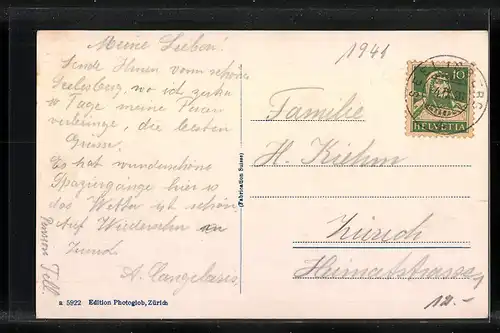 Meine Lieben!
Sende Ihnen vom schönen
Seelisberg, wo ich zirka
10 Tage meine Ferien
verbringe, die besten
Grüsse.
Es hat wunderschöne
Spaziergänge hier so
das Wetter ist schön.
Auf Wiedersehn in
Zürich
A.
Tell
a 5922 Edition Photoglob, Zürich
(Fabrication Suisse)
1941
10
HELVETIA
SEELISBERG
Familie
H. Kiehm
Zürich
Heimatstrasse
12.-